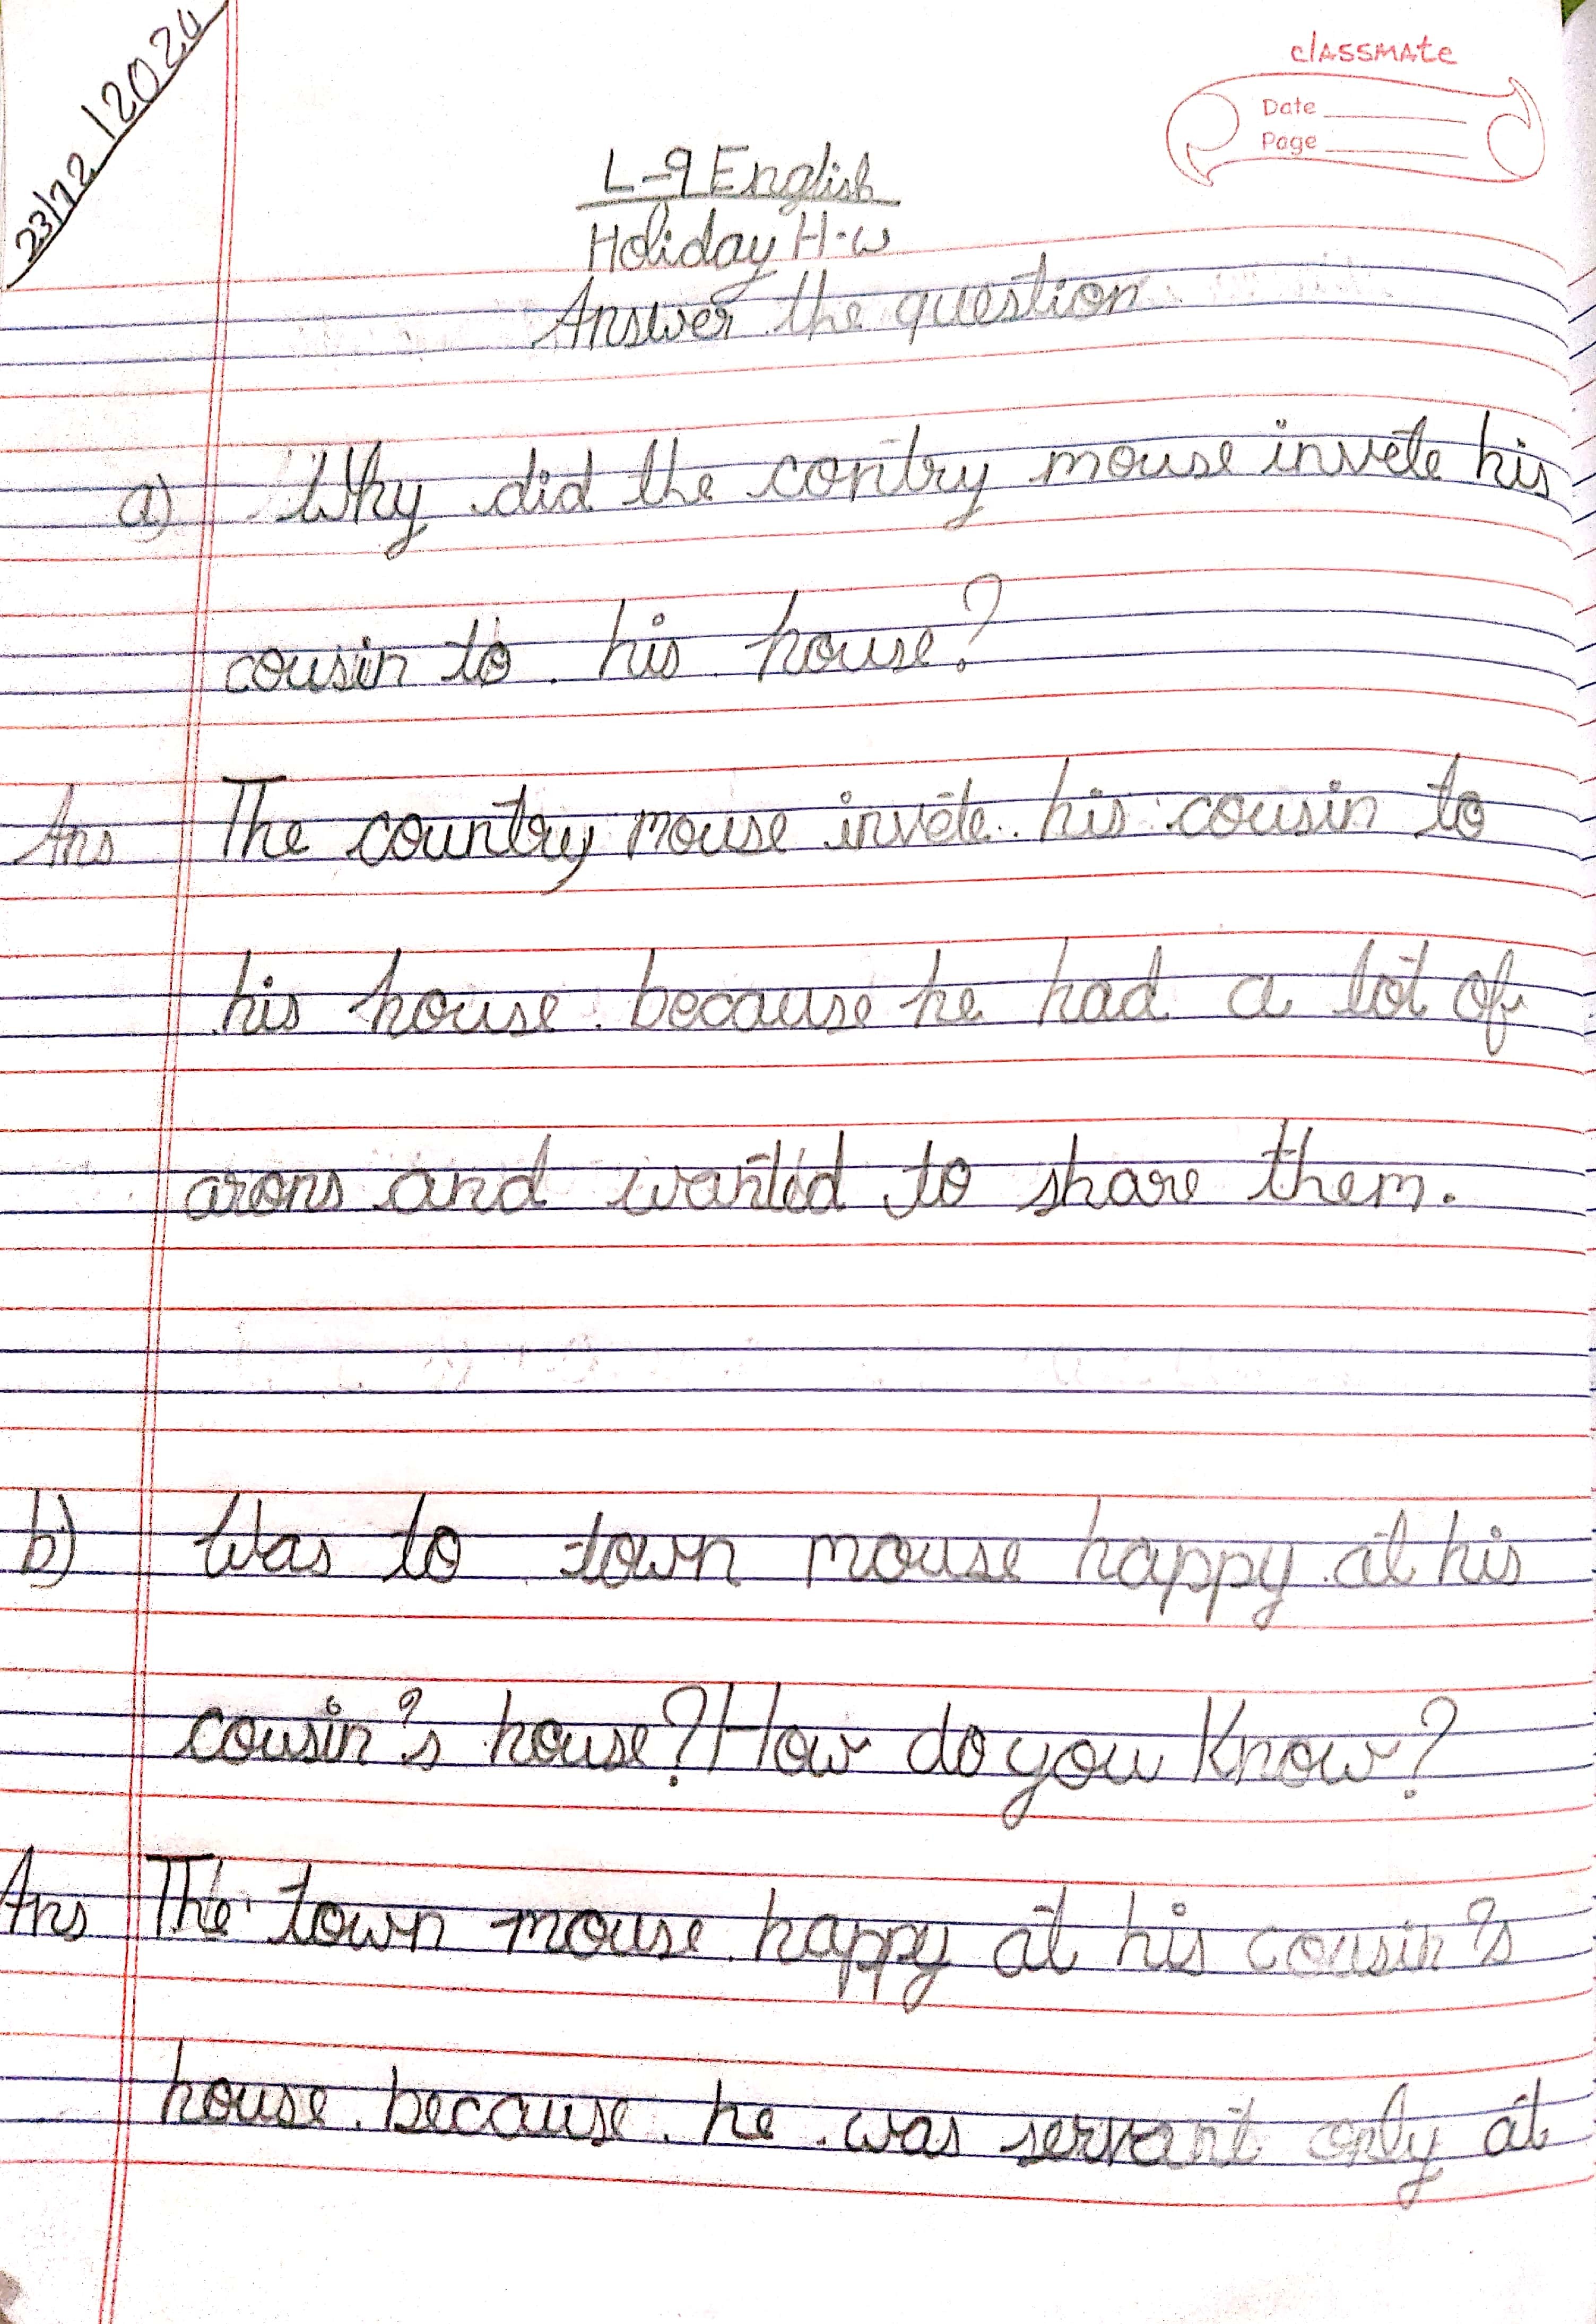 23/12/2024
classmate
Date
Page
L-9 English
Holiday H.w
Answer the question
a) Why did the contry mouse invete his
cousin to his house?
Ans The country mouse invete his cousin to
his house because he had a lot of
arons and wantid to share them.
b) Was to town mouse happy at his
cousin's house? How do you Know?
Ans The town mouse happy at his cousin's
house because he was servant only at